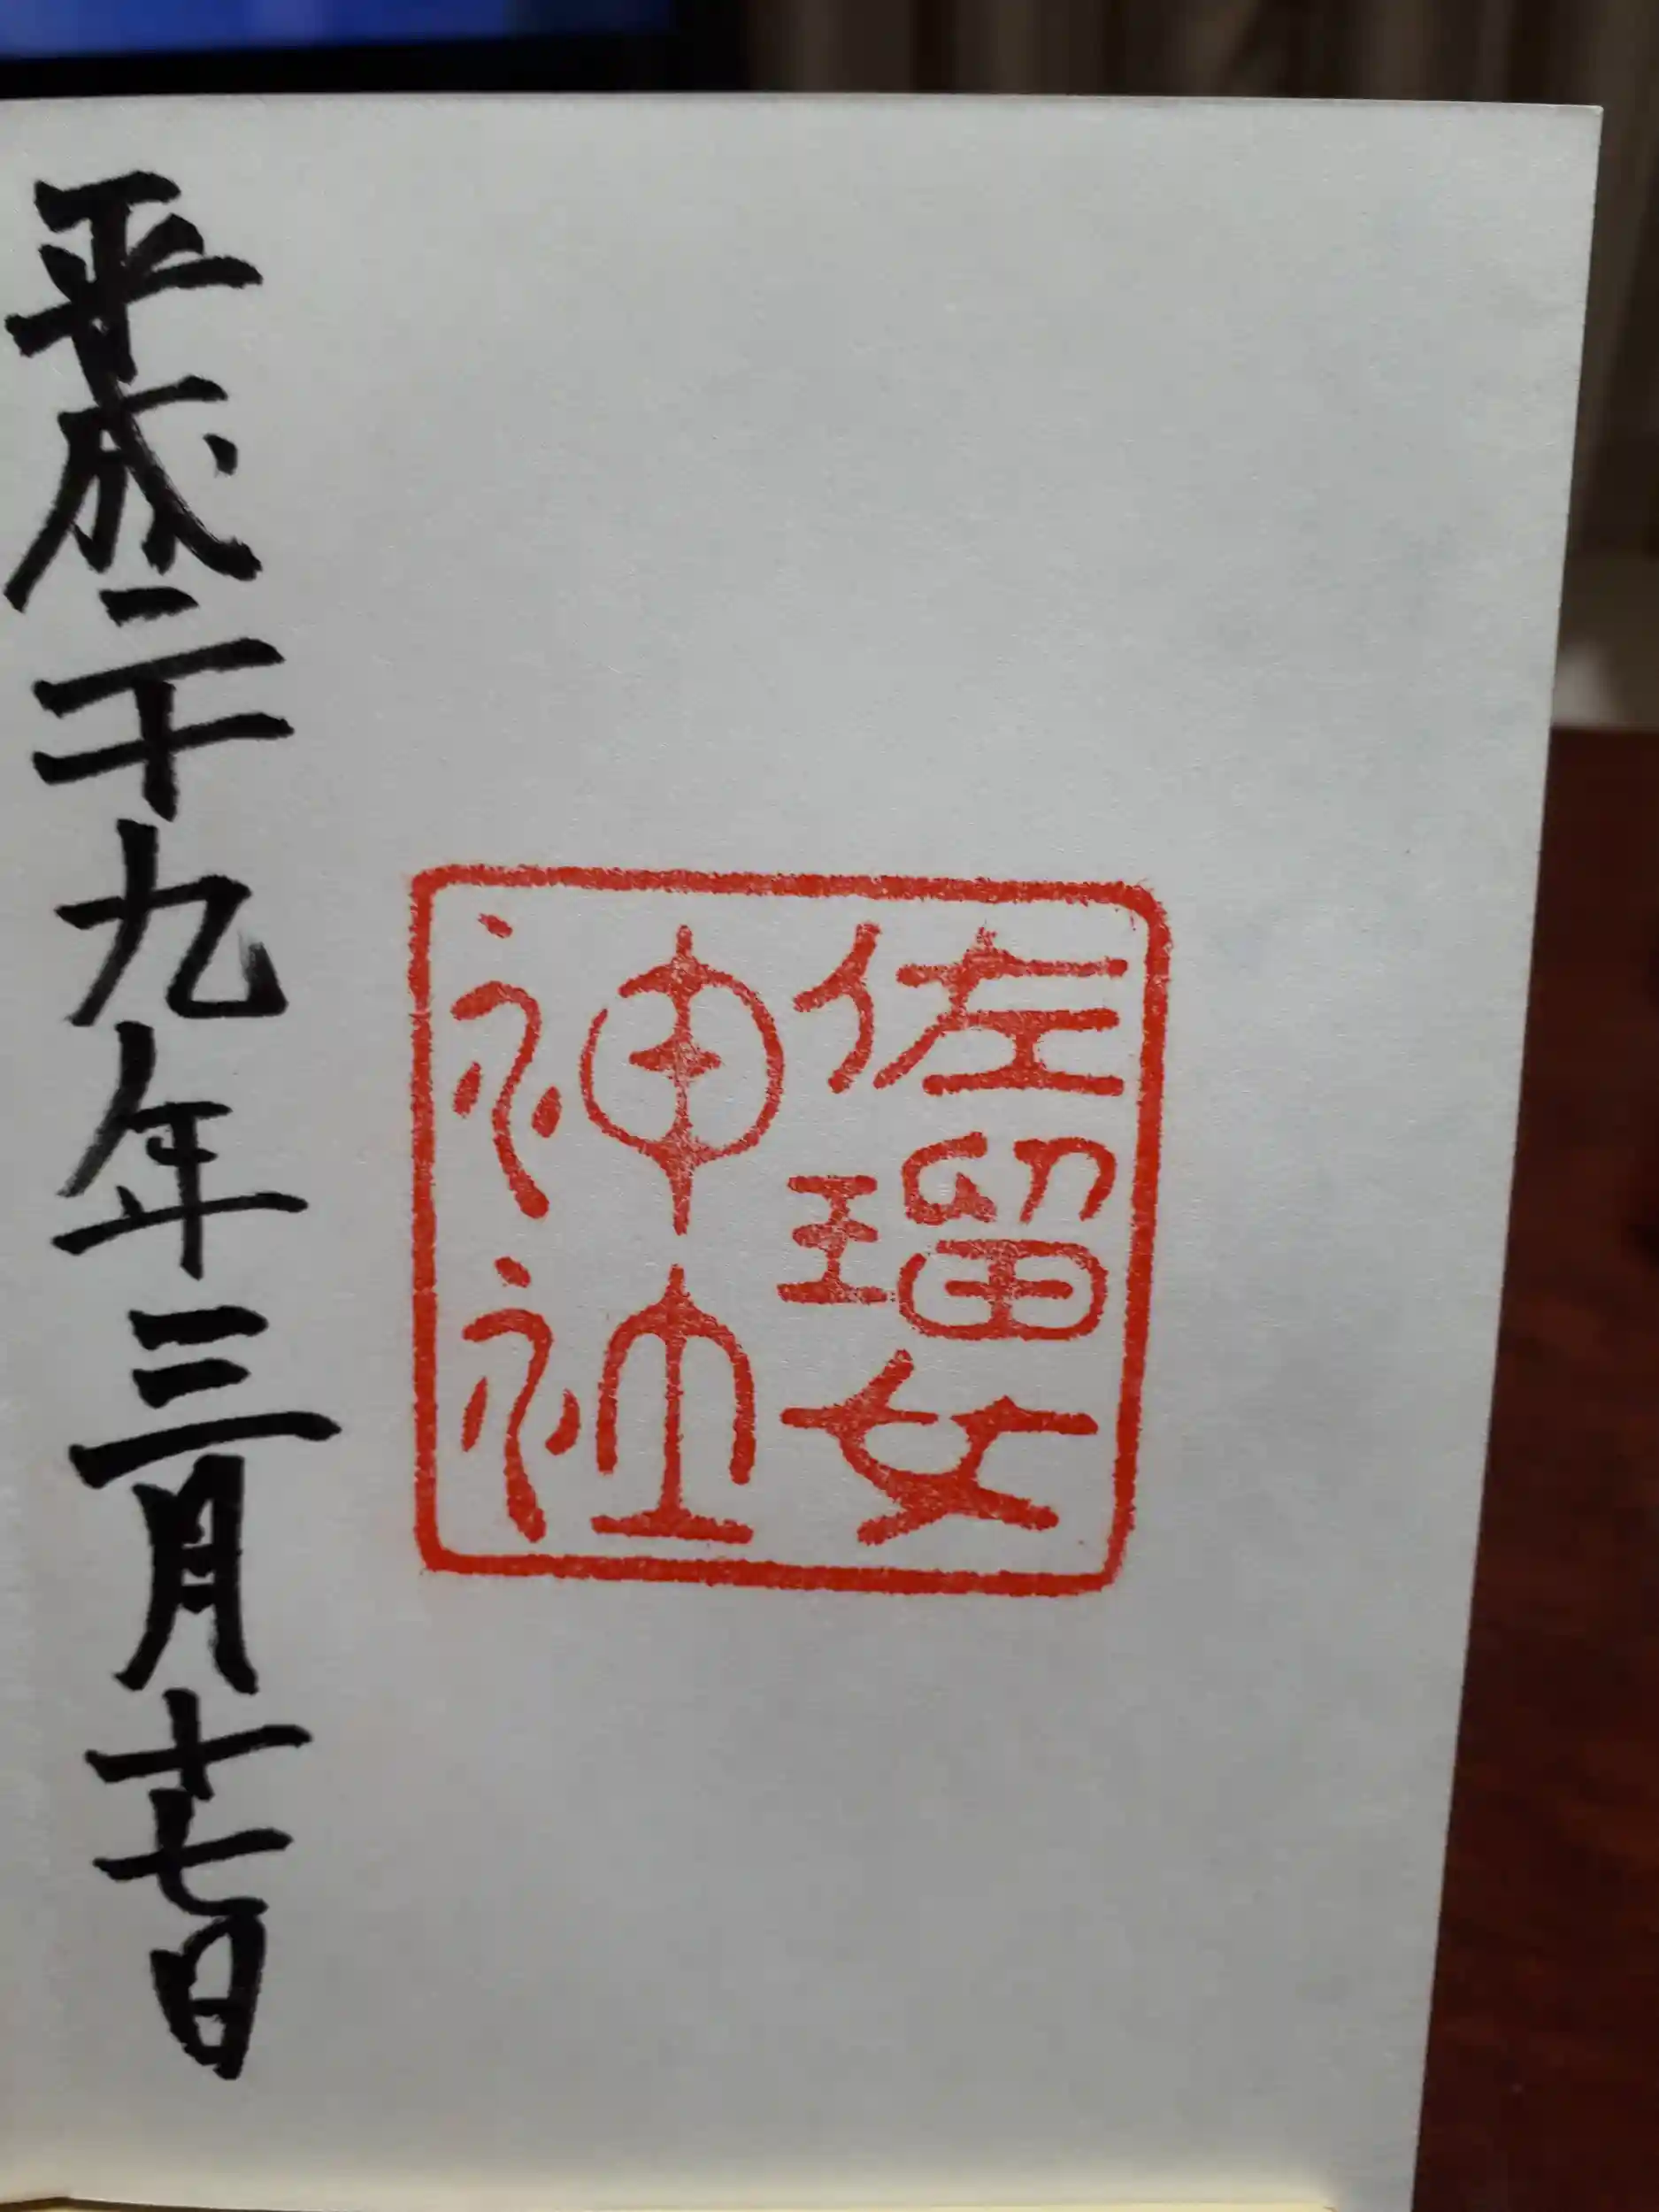 佐瑠女
神社
平成二十九年三月十七日